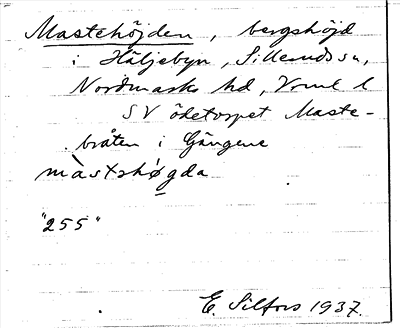 Mastehöjden, bergshöjd
i Häljebyn, Silleruds sn,
Nordmarks hd, Vrml l
SV ödetorpet Maste-
bråten i Gängene
màstshø̱gda
"255"
E. Silfors 1937.